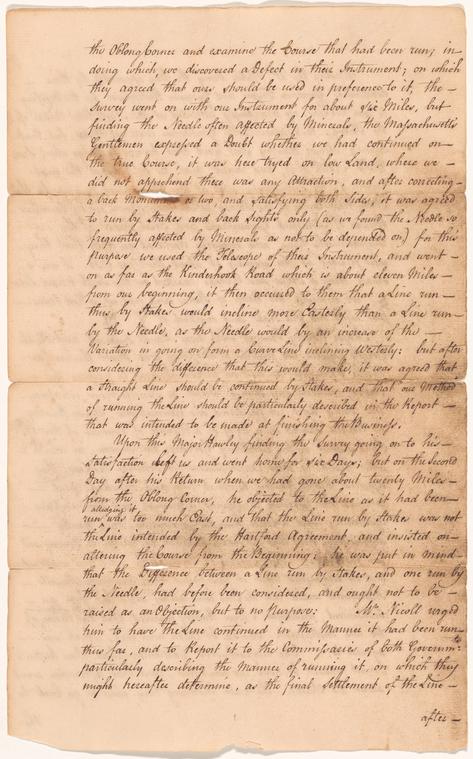 the Oblong Corner and examine the Course that had been run; in—
doing which, we discovered a Defect in their Instrument; on which
they agreed that ours should be used in preference to it, the—
Survey went on with our Instrument for about six Miles, but
finding the Needle often affected by Minerals, the Massachusetts
Gentlemen expressed a Doubt whether we had continued on—
the true Course, it was here tryed on low Land, where we—
did not apprehend there was any Attraction, and after correcting—
a back Monument or two, and Satisfying both Sides, it was agreed
to run by Stakes and back Sights only (as we found the Needle so
frequently affected by Minerals as not to be depended on) for this
Purpose we used the Telescope of their Instrument, and went—
on as far as the Kinderhook Road which is about eleven Miles—
from our beginning, it then occured to them that a Line run—
thus by Stakes would incline more Easterly than a Line run—
by the Needle, as the Needle would by an increase of the—
Variation in going on form a Curve Line inclining Westerly: but after
considering the difference that this would make, it was agreed that
a Straight Line should be continued by Stakes, and that our Method
of running the Line should be particularly described in the Report—
that was intended to be made at finishing the Business.
Upon this Major Hawley finding the Survey going on to his—
Satisfaction left us and went home for six Days; but on the Second
Day after his Return when we had gone about twenty Miles—
from the Oblong Corner, he objected to the Line as it had been—
alledging it
run was too much East, and that the Line run by Stakes was not
the Line intended by the Hartford Agreement, and insisted on—
altering the Course from the Beginning; he was put in mind—
that the Difference between a Line run by Stakes, and one run by
the Needle, had before been considered, and ought not to be—
raised as an Objection, but to no purpose: Mr. Nicoll urged
him to have the Line continued in the Manner it had been run—
thus far, and to Report it to the Commissaries of both Governmts.
particularly describing the Manner of running it, on which they
might hereafter determine, as the final Settlement of the Line—
after—